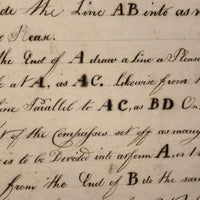 de the Line AB into as m
e Please.
the End of A draw a Line a Pleas
le at A, as AC. Likewise from t
ine Parallel to AC, as BD On
t of the Compasses set off as many
e is to be Divided into as from A, or t
from the End of B do the sam